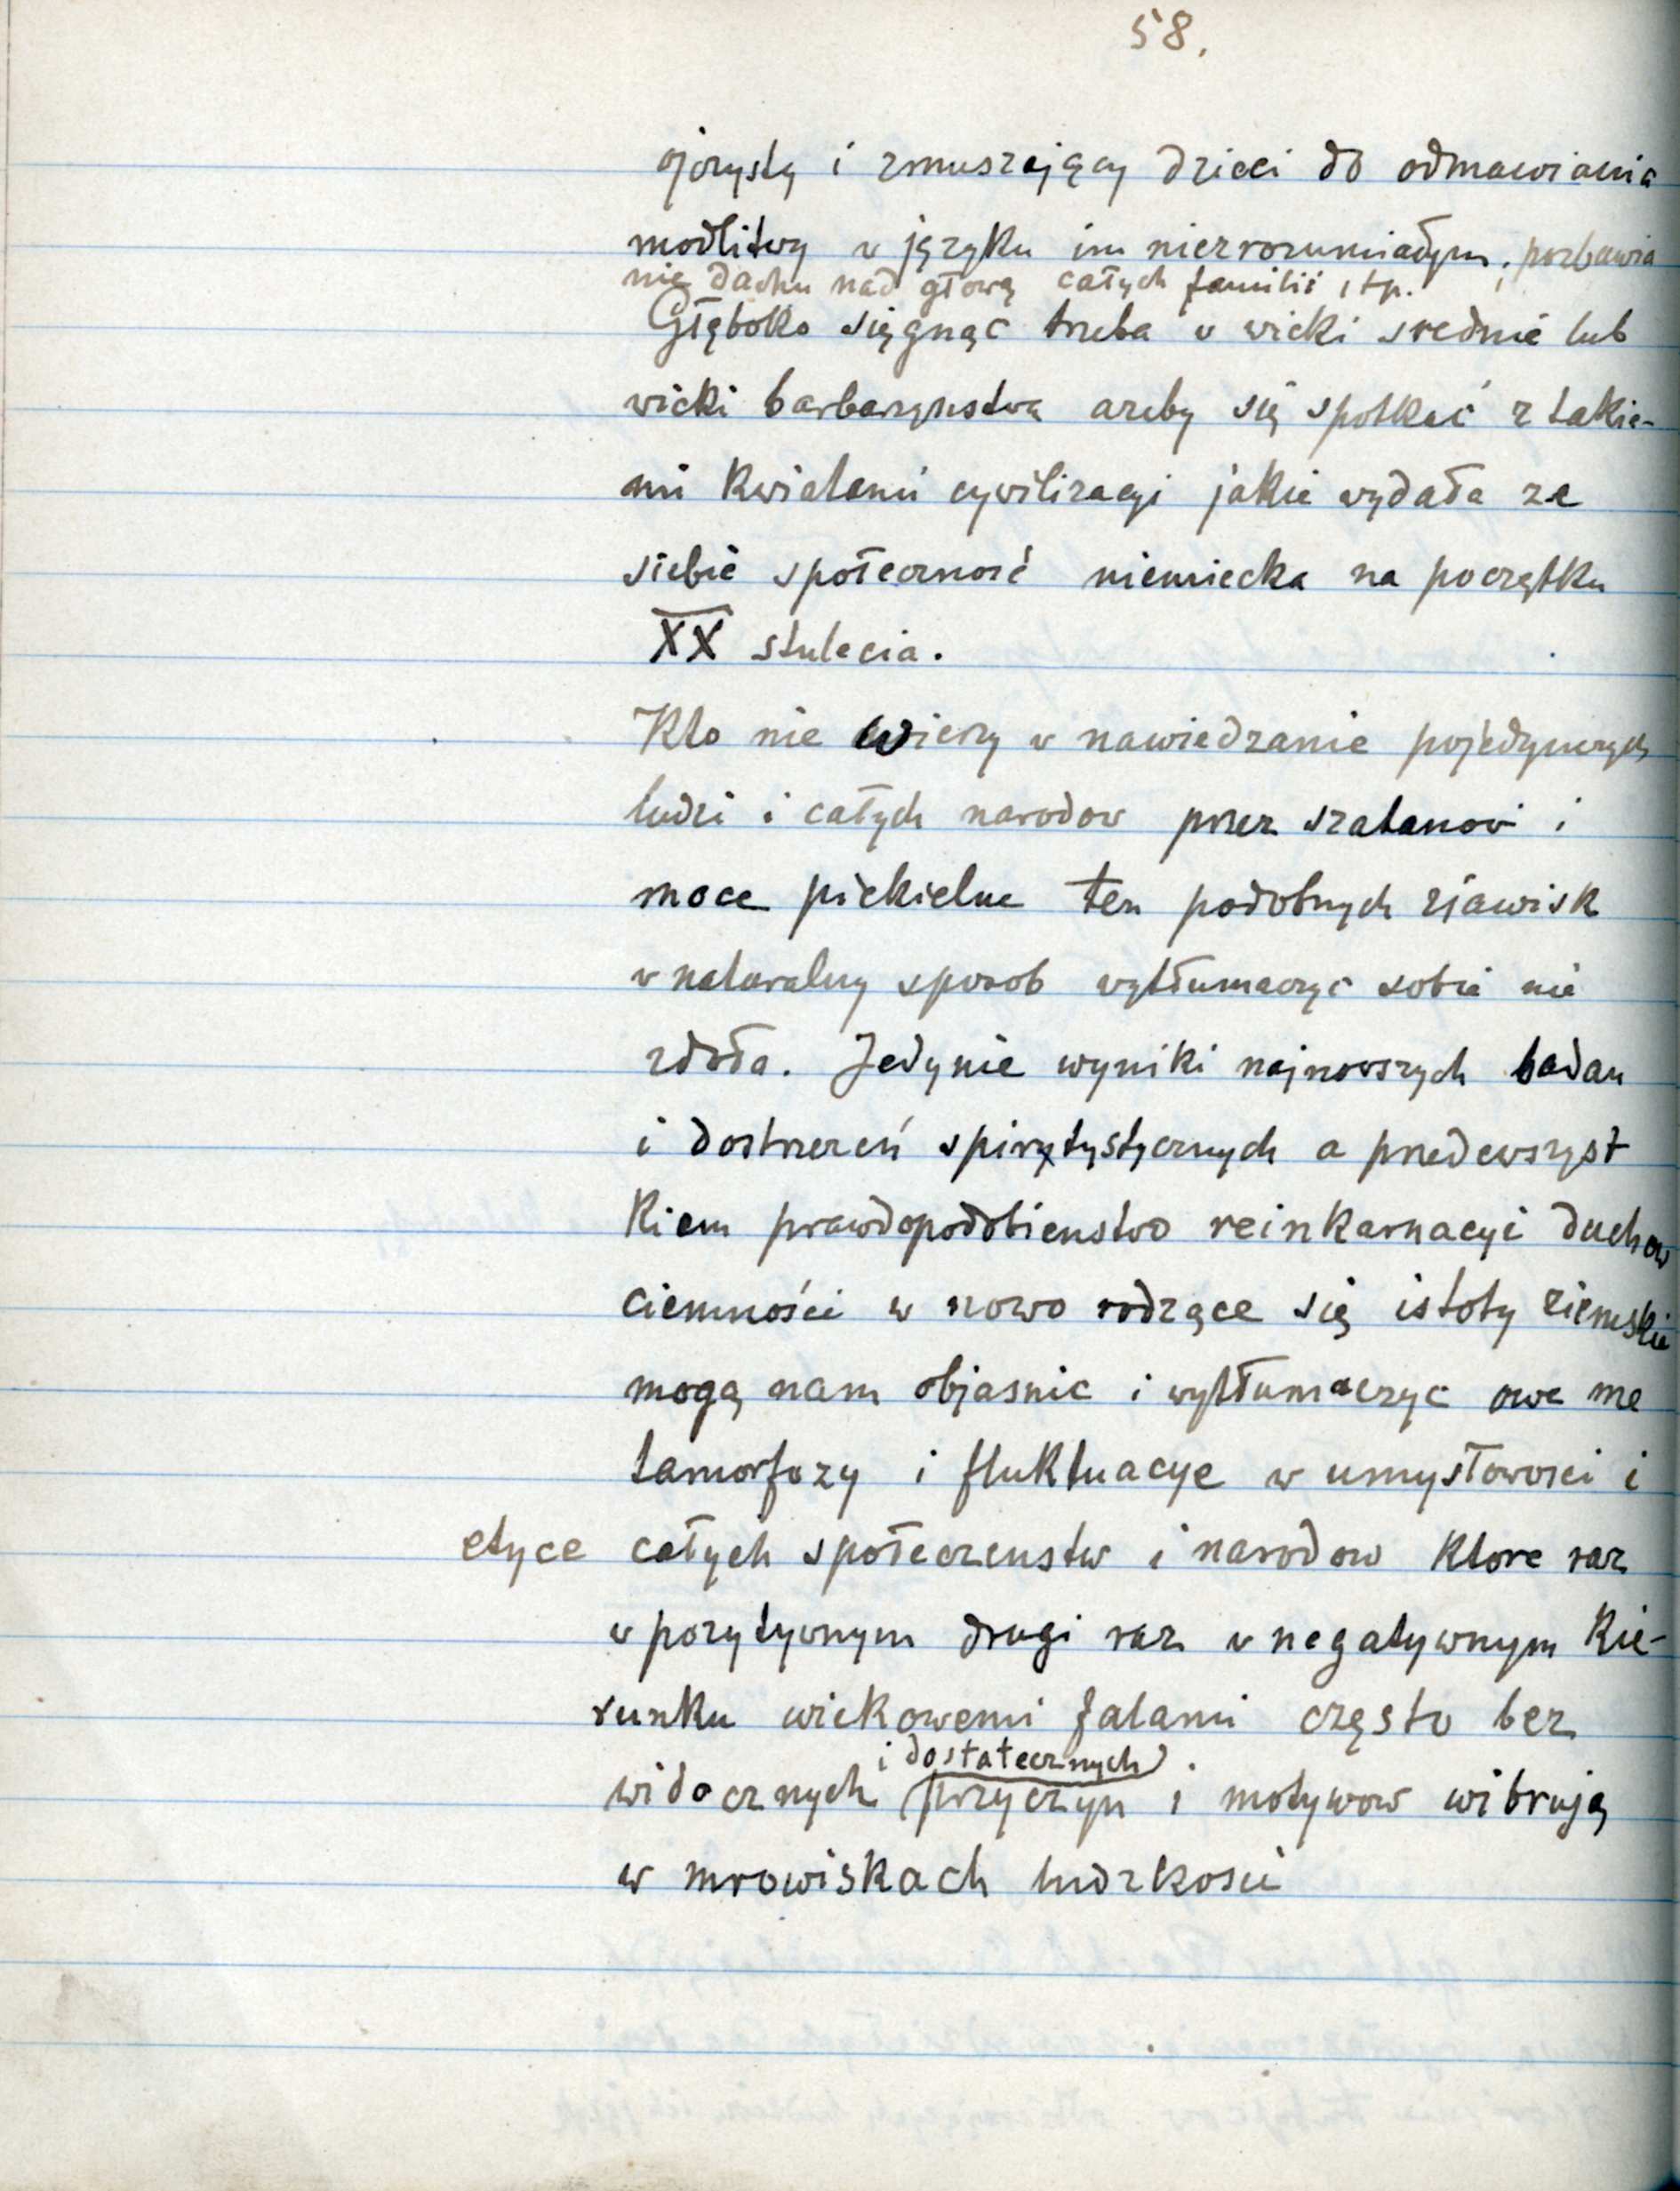 58.
ojczysty i zmuszający dzieci do odmawiania
modlitwy w języku im niezrozumiałym, pozbawia
nie dachu nad głową całych familii itp.
Głęboko sięgnąc trzeba w wieki srednie lub
wieki barbarzynstwa azeby się spotkać z takie-
mi kwiatami cywilizacyi jakie wydała ze
siebie społeczność niemiecka na początku
XX stulecia.
Kto nie wierzy w nawiedzanie pojedynczych
ludzi i całych narodow przez szatanow i
moce piekielne ten podobnych zjawisk
w naturalny sposob wytłumaczyc sobie nie
zdoła. Jedynie wyniki najnowszych badan
i dostrzezeń spirytystycznych a przedewszyst
kiem prawdopodobienstwo reinkarnacyi duchow
ciemności w nowo rodzące się istoty ziemskie
mogą nam objasnic i wytłumaczyc owe me
tamorfozy i fluktuacye w umysłowosci i
etyce całych społeczenstw i narodow ktore raz
w pozytywnym drugi raz w negatywnym kie-
runku wiekowemi falami często bez
i dostatecznych
widocznych przyczyn i motywow wibrują
w mrowiskach ludzkosci